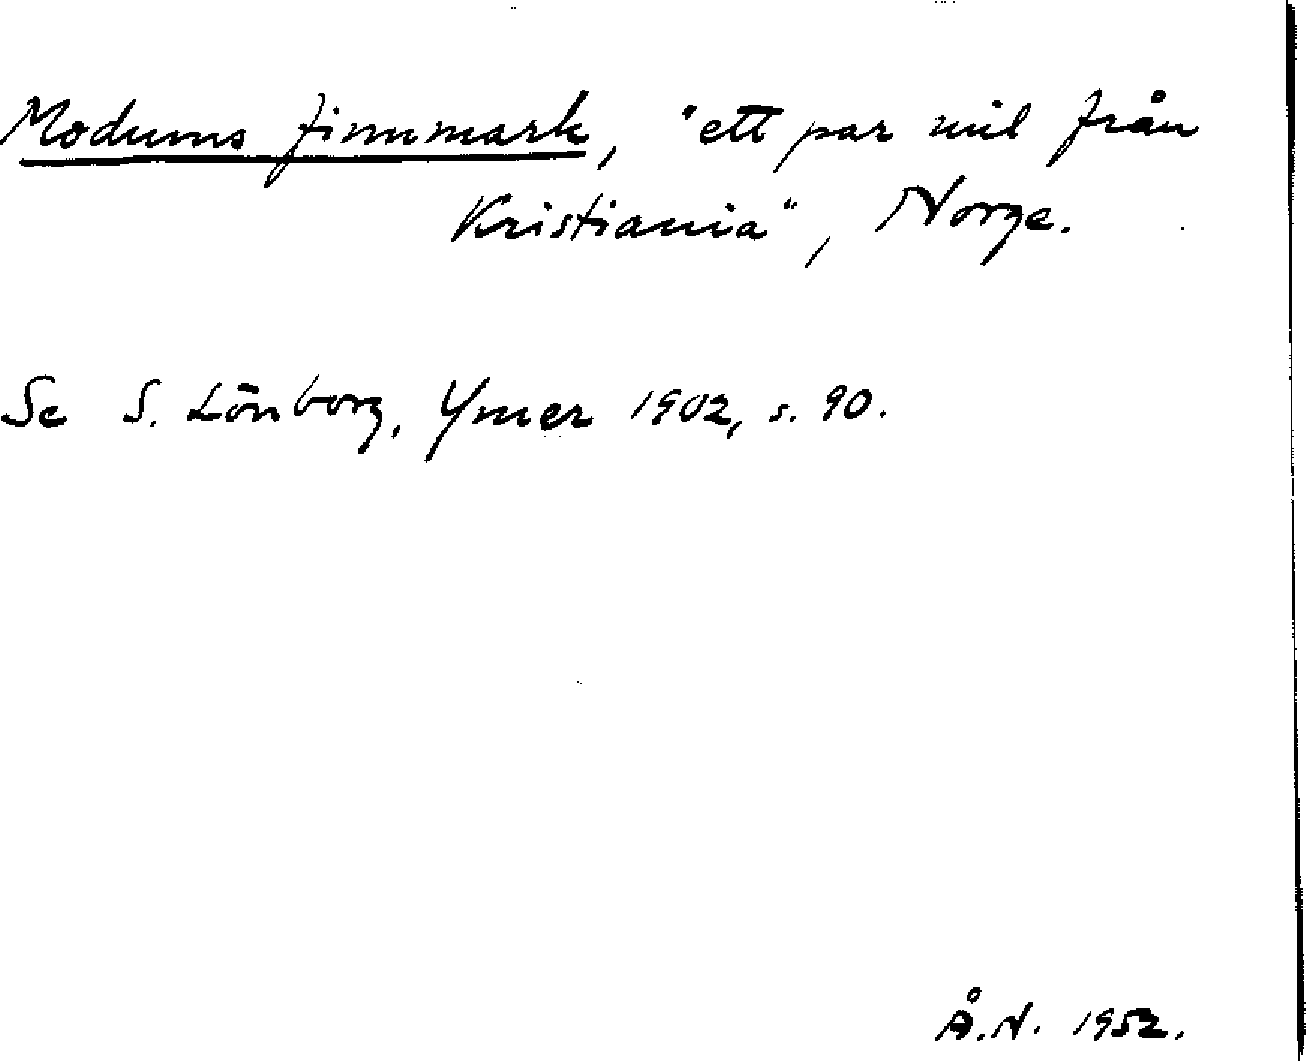 Modums finnmark, "ett par mil från
Kristiania", Norge.
Se S. Lönborg, Ymer 1902, s. 90.
Å.N. 1952.